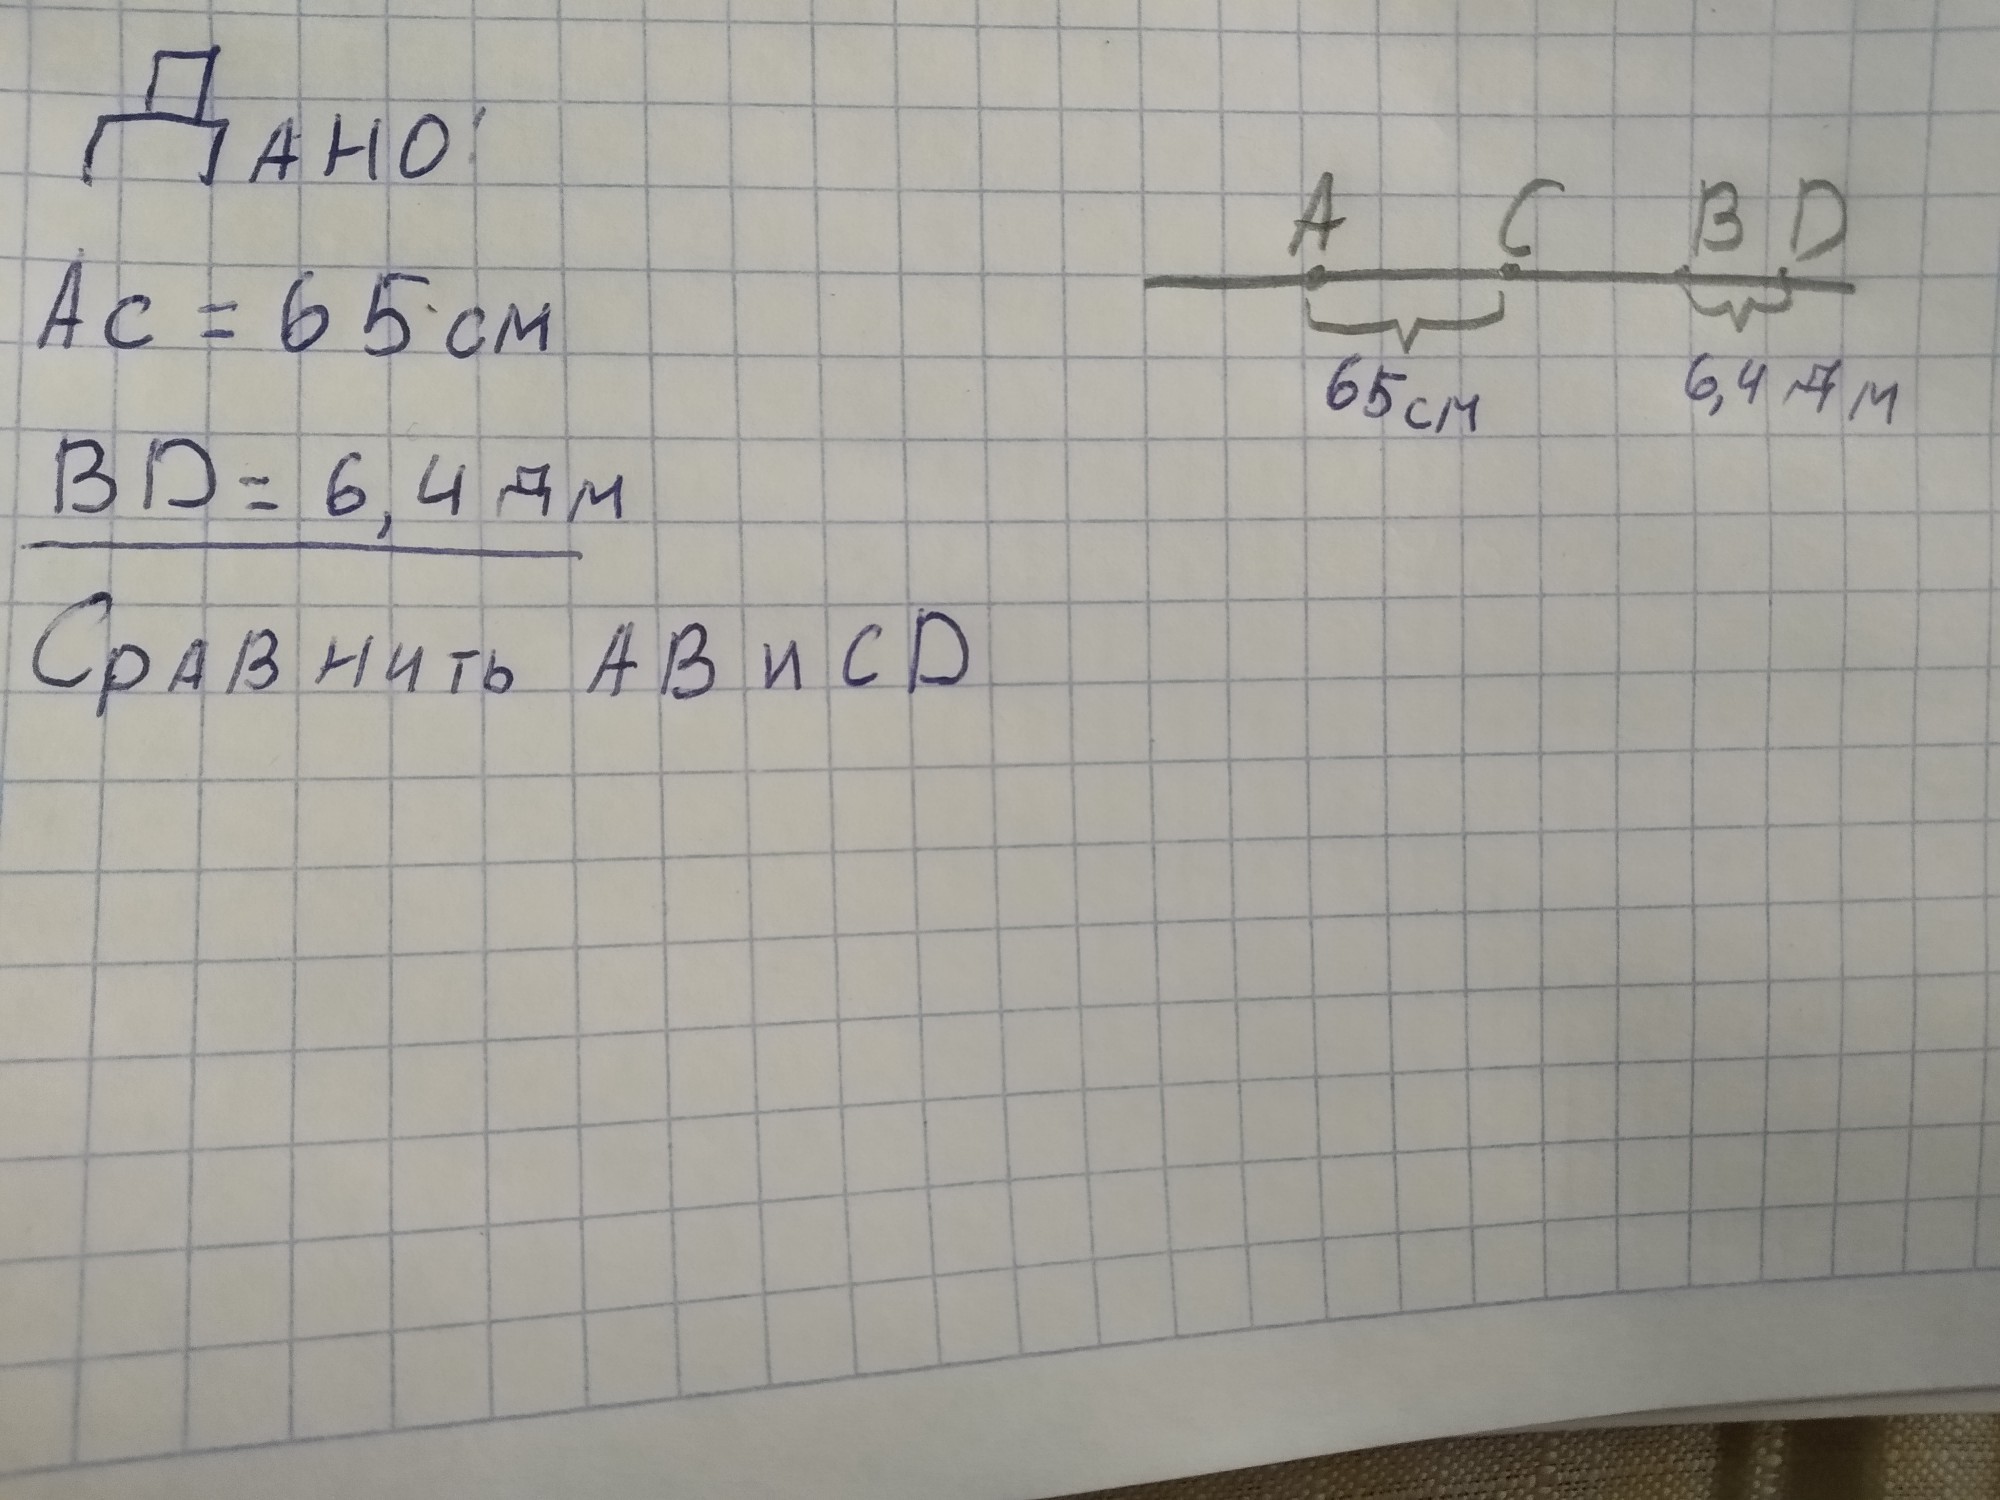 ДАНО:
AC = 65 см
BD = 6,4 дм
Сравнить AB и CD
A C B D
65 см 6,4 дм